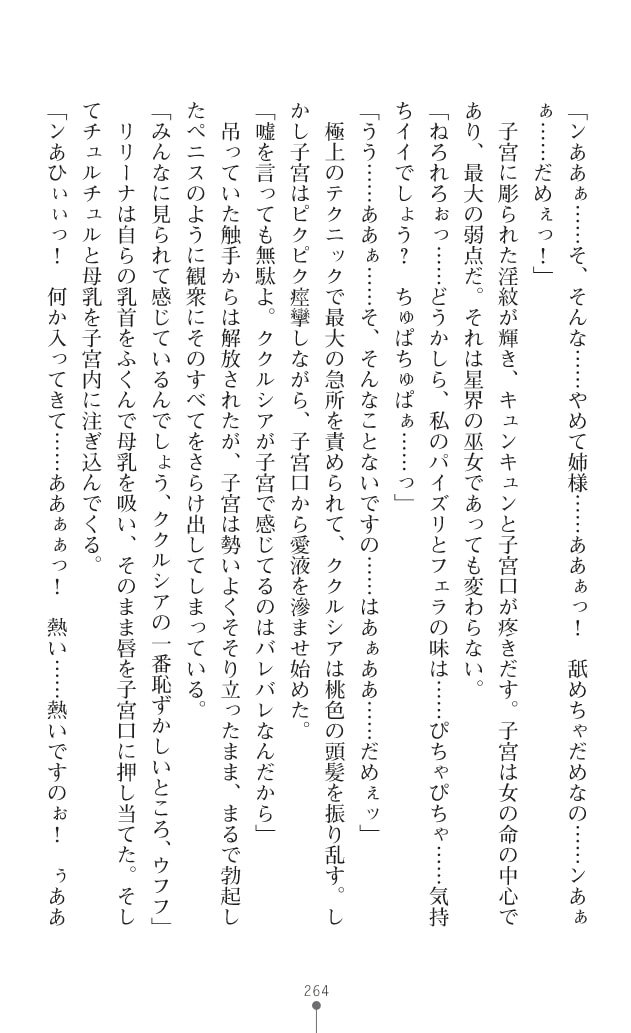 「ンああぁ……そ、そんな……やめて姉様……ああぁっ！　舐めちゃだめなの……ンあぁ
ぁ……だめぇっ！」
　子宮に彫られた淫紋が輝き、キュンキュンと子宮口が疼きだす。子宮は女の命の中心で
あり、最大の弱点だ。それは星界の巫女であっても変わらない。
「ねろれろぉっ……どうかしら、私のパイズリとフェラの味は……ぴちゃぴちゃ……気持
ちイイでしょう？　ちゅぱちゅぱぁ……っ」
「うう……ああぁ……そ、そんなことないですの……はあぁああ……だめぇッ」
　極上のテクニックで最大の急所を責められて、ククルシアは桃色の頭髪を振り乱す。し
かし子宮はピクピク痙攣しながら、子宮口から愛液を滲ませ始めた。
「嘘を言っても無駄よ。ククルシアが子宮で感じてるのはバレバレなんだから」
　吊っていた触手からは解放されたが、子宮は勢いよくそそり立ったまま、まるで勃起し
たペニスのように観衆にそのすべてをさらけ出してしまっている。
「みんなに見られて感じているんでしょう、ククルシアの一番恥ずかしいところ、ウフフ」
　リリーナは自らの乳首をふくんで母乳を吸い、そのまま唇を子宮口に押し当てた。そし
てチュルチュルと母乳を子宮内に注ぎ込んでくる。
「ンあひぃぃっ！　何か入ってきて……ああぁぁっ！　熱い……熱いですのぉ！　ぅああ
264